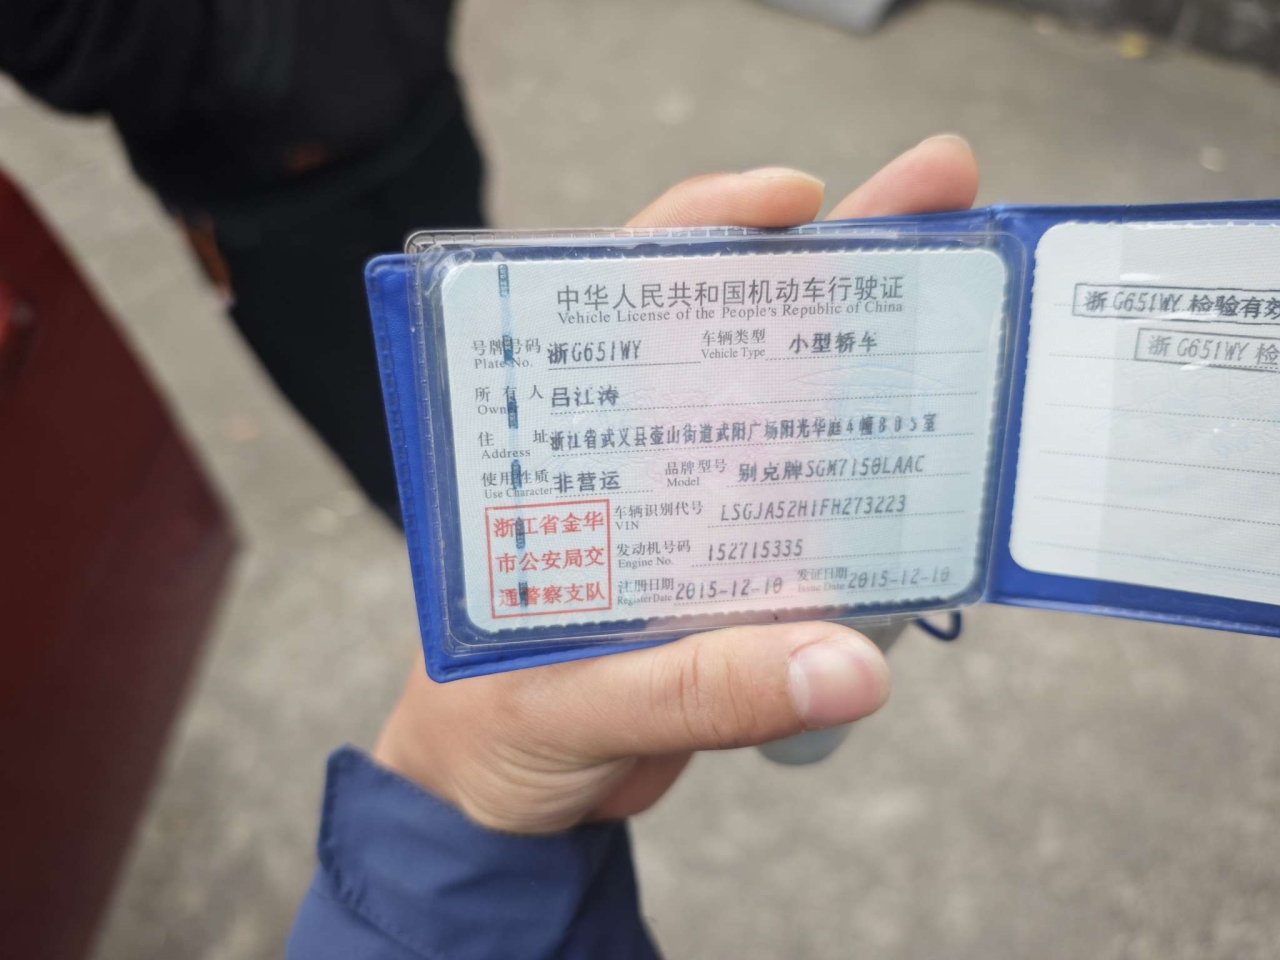 中华人民共和国机动车行驶证
Vehicle License of the People's Republic of China
号牌号码 浙G651WY 车辆类型 小型轿车
Plate No. Vehicle Type
所有人 吕江涛
Owner
住址 浙江省武义县壶山街道武阳广场阳光华庭4幢805室
Address
使用性质 非营运 品牌型号 别克牌SGM7150LAAC
Use Character Model
浙江省金华
市公安局交
通警察支队
车辆识别代号 LSGJA52H1FH273223
VIN
发动机号码 152715335
Engine No.
注册日期 2015-12-10 发证日期 2015-12-10
Register Date Issue Date
浙G651WY 检验有效
浙G651WY 检